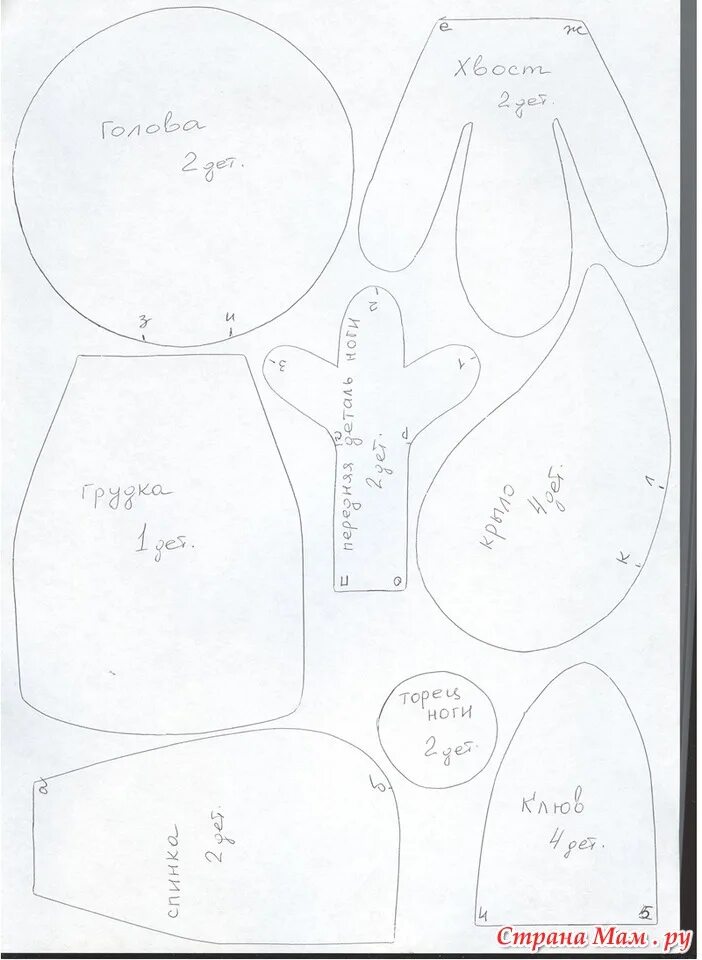 е ж
хвост
2 дет.
голова
2 дет.
з и
2
3 1
передняя деталь ноги
2 дет.
г д
п о
грудка
1 дет.
крыло
4 дет.
л
к
торец
ноги
2 дет.
а б
спинка
2 дет.
клюв
4 дет.
4 5
Страна Мам.ру